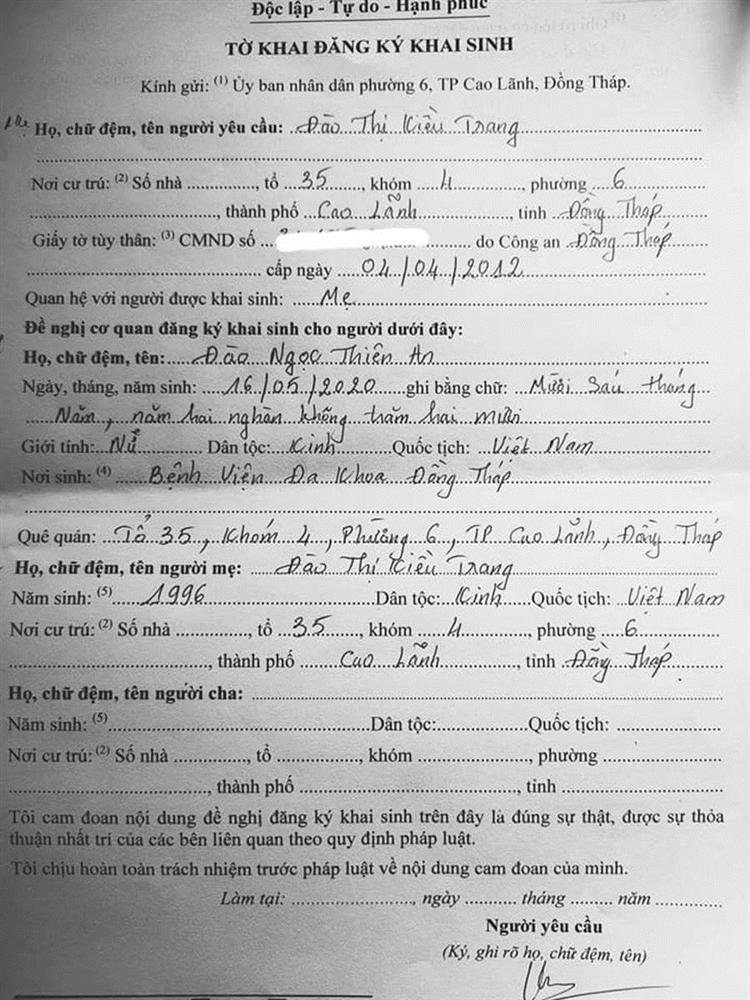 Độc lập - Tự do - Hạnh phúc
TỜ KHAI ĐĂNG KÝ KHAI SINH
Kính gửi: (1) Ủy ban nhân dân phường 6, TP Cao Lãnh, Đồng Tháp.
Họ, chữ đệm, tên người yêu cầu: Đào Thị Kiều Trang
Nơi cư trú: (2) Số nhà ............, tổ 35, khóm 4, phường 6
............, thành phố Cao Lãnh, tỉnh Đồng Tháp
Giấy tờ tùy thân: (3) CMND số ............ do Công an Đồng Tháp
............ cấp ngày 04/04/2012
Quan hệ với người được khai sinh: Mẹ
Đề nghị cơ quan đăng ký khai sinh cho người dưới đây:
Họ, chữ đệm, tên: Đào Ngọc Thiên An
Ngày, tháng, năm sinh: 16/05/2020 ghi bằng chữ: Mười Sáu tháng
Năm, năm hai nghàn không trăm hai mươi
Giới tính: Nữ Dân tộc: Kinh Quốc tịch: Việt Nam
Nơi sinh: (4) Bệnh Viện Đa Khoa Đồng Tháp
Quê quán: Tổ 35, Khóm 4, Phường 6, TP Cao Lãnh, Đồng Tháp
Họ, chữ đệm, tên người mẹ: Đào Thị Kiều Trang
Năm sinh: (5) 1996 Dân tộc: Kinh Quốc tịch: Việt Nam
Nơi cư trú: (2) Số nhà ............, tổ 35, khóm 4, phường 6
............, thành phố Cao Lãnh, tỉnh Đồng Tháp
Họ, chữ đệm, tên người cha: ............
Năm sinh: (5) ............ Dân tộc: ............ Quốc tịch: ............
Nơi cư trú: (2) Số nhà ............, tổ ............, khóm ............, phường ............
............, thành phố ............, tỉnh ............
Tôi cam đoan nội dung đề nghị đăng ký khai sinh trên đây là đúng sự thật, được sự thỏa
thuận nhất trí của các bên liên quan theo quy định pháp luật.
Tôi chịu hoàn toàn trách nhiệm trước pháp luật về nội dung cam đoan của mình.
Làm tại: ............, ngày ......... tháng ......... năm ............
Người yêu cầu
(Ký, ghi rõ họ, chữ đệm, tên)